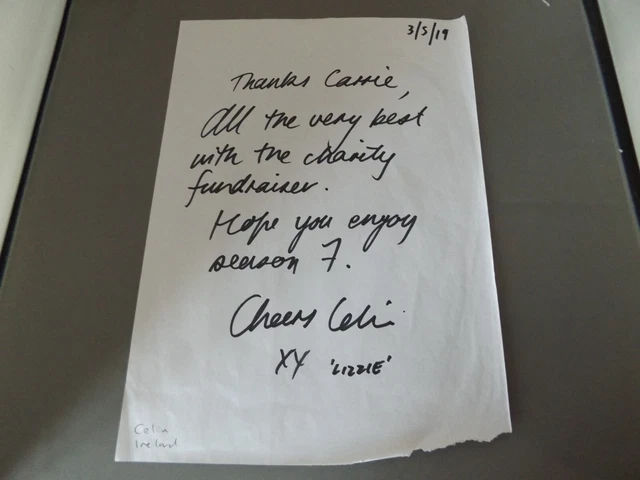 3/5/19
Thanks Carrie,
All the very best
with the charity
fundraiser.
Hope you enjoy
season 7.
Cheers Celia
XX 'LIZZIE'
Celia
Ireland